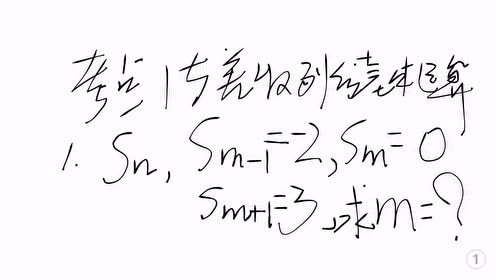 考点1 等差数列结基本运算
1. Sn, Sm-1=-2, Sm=0
Sm+1=3, 求m=?
1